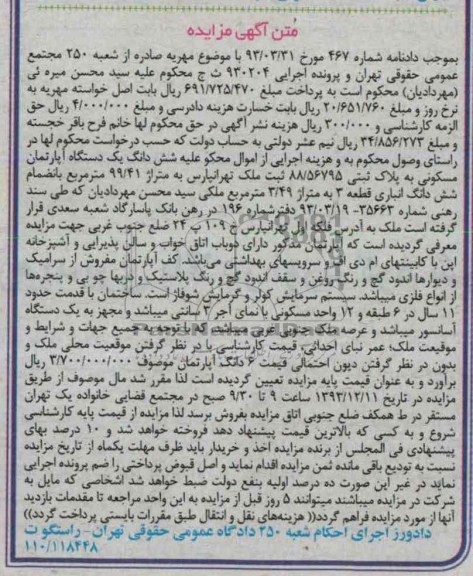 متن آگهی مزایده
بموجب دادنامه شماره ۴۶۷ مورخ ۹۳/۰۳/۳۱ با موضوع مهریه صادره از شعبه ۲۵۰ مجتمع
عمومی حقوقی تهران و پرونده اجرایی ۹۳۰۲۰۴ ث ج محکوم علیه سید محسن میره ئی
(مهردادیان) محکوم است به پرداخت مبلغ ۶۹۱/۷۲۵/۴۷۰ ریال بابت اصل خواسته مهریه به
نرخ روز و مبلغ ۲۰/۶۵۱/۷۶۰ ریال بابت خسارت هزینه دادرسی و مبلغ ۴/۰۰۰/۰۰۰ ریال حق
الزمه کارشناسی و ۳۰۰/۰۰۰ ریال هزینه نشر آگهی در حق محکوم لها خانم فرح باقر خجسته
و مبلغ ۳۴/۸۵۶/۲۷۳ ریال نیم عشر دولتی به حساب دولت که حسب درخواست محکوم لها در
راستای وصول محکوم به و هزینه اجرایی از اموال محکو علیه شش دانگ یک دستگاه آپارتمان
مسکونی به پلاک ثبتی ۸۸/۵۶۷۹۵ ثبت ملک تهرانپارس به متراژ ۹۹/۴۱ مترمربع بانضمام
شش دانگ انباری قطعه ۳ به متراژ ۳/۴۹ مترمربع ملکی سید محسن مهردادیان که طی سند
رهنی شماره ۳۵۶۶۳- ۹۳/۰۳/۱۹ دفترشماره ۱۹۶ در رهن بانک پاسارگاد شعبه سعدی قرار
گرفته است ملک به آدرس فلکه اول تهرانپارس خ ۱۰۹ پ ۲۴ ضلع جنوب غربی جهت مزایده
معرفی گردیده است که آپارتمان مذکور دارای دوباب اتاق خواب و سالن پذیرایی و آشپزخانه
اپن با کابینتهای ام دی اف و سرویسهای بهداشتی می‌باشد. کف آپارتمان مفروش از سرامیک
و دیوارها اندود گچ و رنگ روغن و سقف اندود گچ و رنگ پلاستیک و دربها چو بی و پنجره‌ها
از انواع فلزی میباشد. سیستم سرمایش کولر و گرمایش شوفاژ است. ساختمان با قدمت حدود
۱۱ سال در ۶ طبقه و ۱۲ واحد مسکونی با نمای آجر ۳ سانتی میباشد و مجهز به یک دستگاه
آسانسور میباشد و عرصه ملک جنوبی غربی میباشد که با توجه به جمیع جهات و شرایط و
موقیعت ملک؛ عمر نبای احداثی، قیمت کارشناسی با در نظر گرفتن موقعیت محلی ملک و
بدون در نظر گرفتن دیون احتمالی قیمت ۶ دانگ آپارتمان موصوف ۳/۷۰۰/۰۰۰/۰۰۰ ریال
برآورد و به عنوان قیمت پایه مزایده تعیین گردیده است لذا مقرر شد مال موصوف از طریق
مزایده در تاریخ ۱۳۹۳/۱۲/۱۱ ساعت ۹ تا ۹/۳۰ صبح در مجتمع قضایی خانواده یک تهران
مستقر در ط همکف ضلع جنوبی اتاق مزایده بفروش برسد لذا مزایده از قیمت پایه کارشناسی
شروع و به کسی که بالاترین قیمت پیشنهاد دهد فروخته خواهد شد و ۱۰ درصد بهای
پیشنهادی فی المجلس از برنده مزایده اخذ و خریدار باید ظرف مهلت یکماه از تاریخ مزایده
نسبت به تودیع باقی مانده ثمن مزایده اقدام نماید و اصل قبوض پرداختی را ضم پرونده اجرایی
نماید در غیر این صورت ده درصد اولیه بنفع دولت ضبط خواهد شد اشخاصی که مایل به
شرکت در مزایده میباشند میتوانند ۵ روز قبل از مزایده به این واحد مراجعه تا مقدمات بازدید
آنها از مورد مزایده فراهم گردد(( هزینه‌های نقل و انتقال طبق مقررات بایستی پرداخت گردد))
دادورز اجرای احکام شعبه ۲۵۰ دادگاه عمومی حقوقی تهران- راستگو ت
۱۱۰/۱۱۸۴۴۸